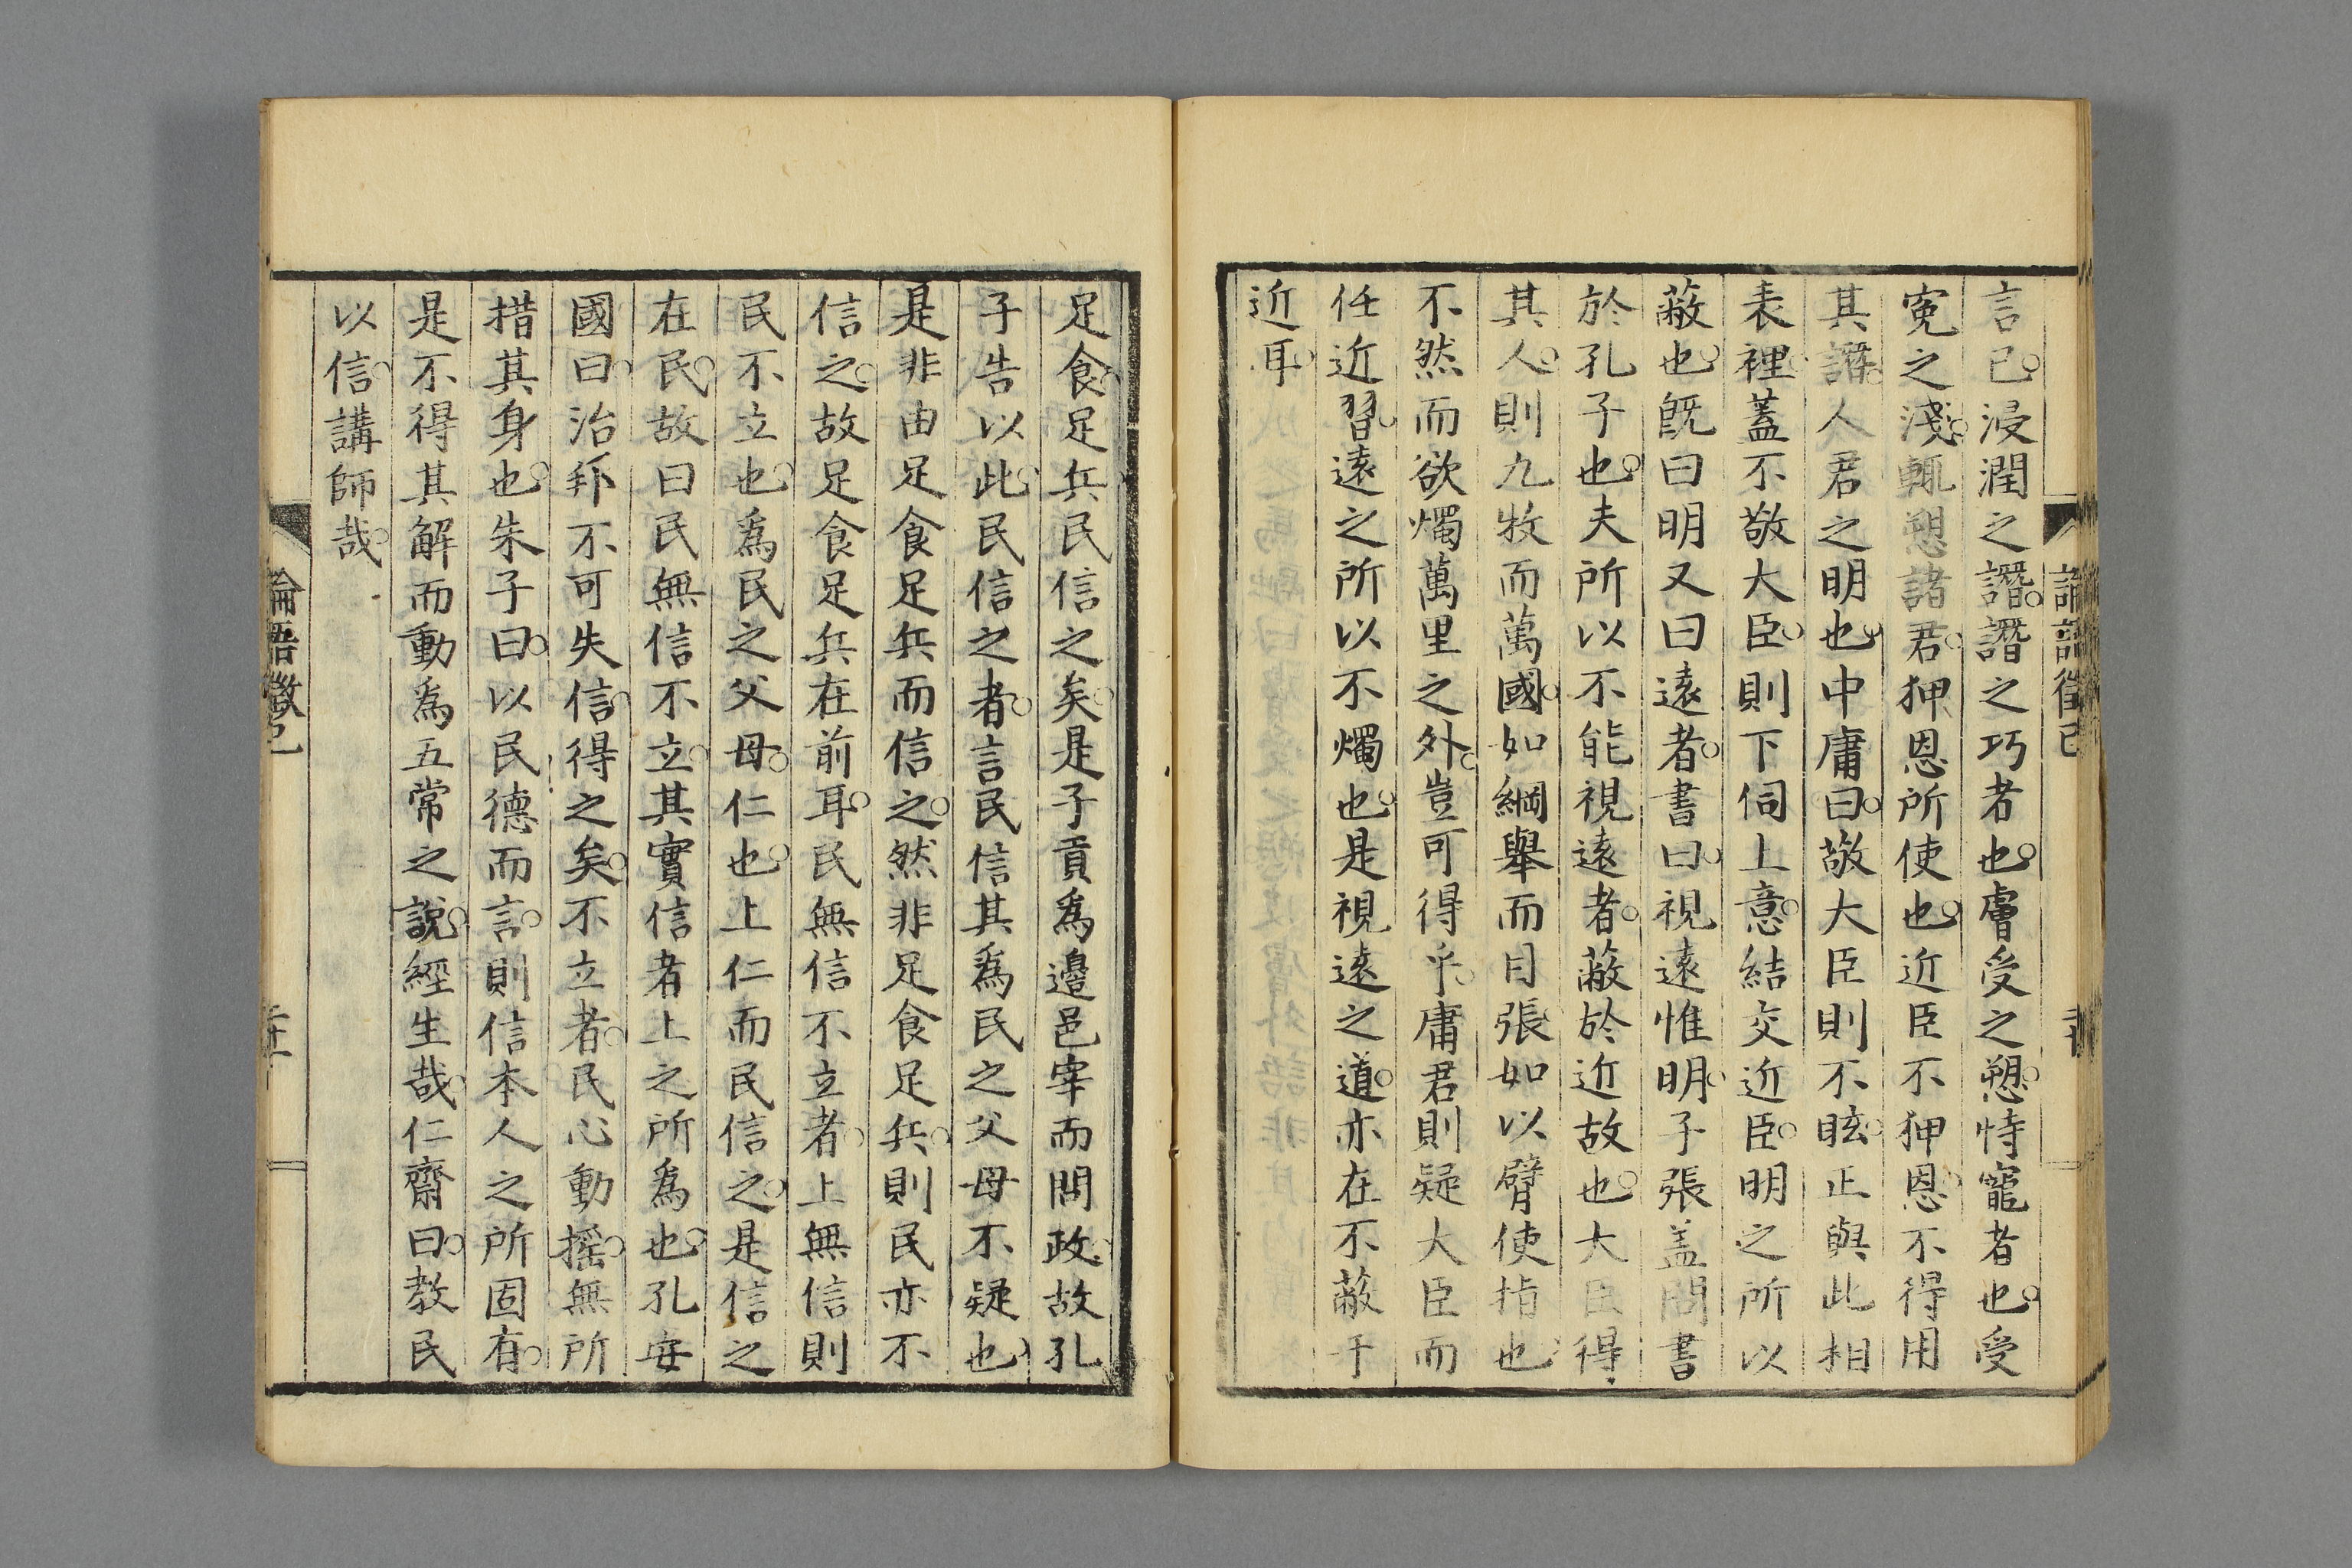 言已浸潤之譖譖之巧者也膚受之愬恃寵者也受
冤之淺輒愬諸君狎恩所使也近臣不狎恩不得用
其譖人君之明也中庸曰敬大臣則不眩正與此相
表裡蓋不敬大臣則下伺上意結交近臣明之所以
蔽也旣曰明又曰遠者書曰視遠惟明子張盖問書
於孔子也夫所以不能視遠者蔽於近故也大臣得
其人則九牧而萬國如綱舉而目張如以臂使指也
不然而欲燭萬里之外豈可得乎庸君則疑大臣而
任近習遠之所以不燭也是視遠之道亦在不蔽于
近耳
足食足兵民信之矣是子貢爲邊邑宰而問政故孔
子告以此民信之者言民信其爲民之父母不疑也
是非由足食足兵而信之然非足食足兵則民亦不
信之故足食足兵在前耳民無信不立者上無信則
民不立也爲民之父母仁也上仁而民信之是信之
在民故曰民無信不立其實信者上之所爲也孔安
國曰治邦不可失信得之矣不立者民心動搖無所
措其身也朱子曰以民德而言則信本人之所固有
是不得其解而動爲五常之說經生哉仁齋曰教民
以信講師哉
論語徵己